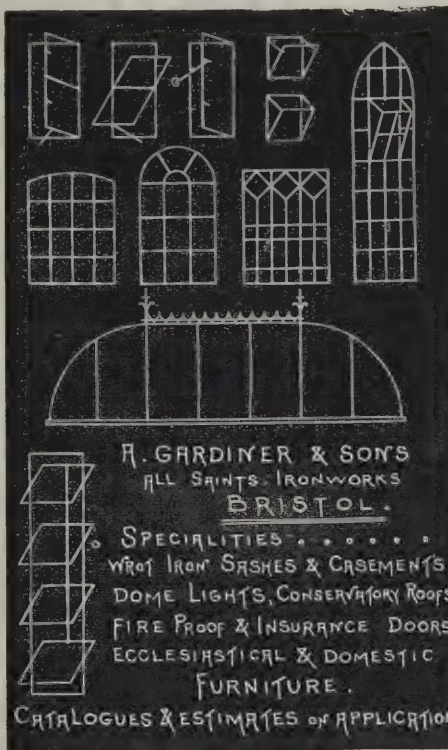 A. GARDINER & SONS
ALL SAINTS. IRONWORKS
BRISTOL.
SPECIALITIES . . . . . .
WROT IRON SASHES & CASEMENTS
DOME LIGHTS, CONSERVATORY ROOFS
FIRE PROOF & INSURANCE DOORS
ECCLESIASTICAL & DOMESTIC
FURNITURE.
CATALOGUES & ESTIMATES ON APPLICATION